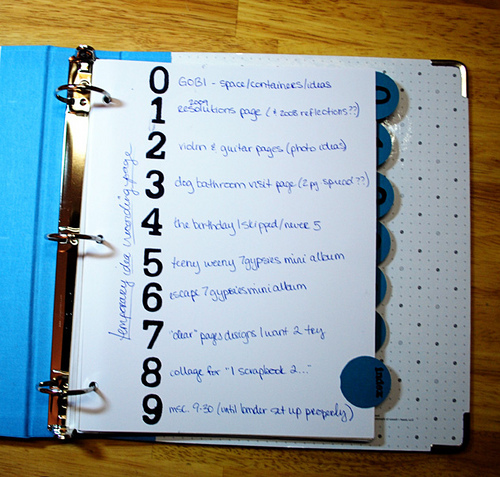 temporary idea wrangling page
0 GOBI - space/containers/ideas
2009
1 resolutions page (& 2008 reflections??)
2 violin & guitar pages (photo ideas)
3 dog bathroom visit page (2pg spread??)
4 the birthday I skipped/never 5
5 teeny weeny 7gypsies mini album
6 escape 7gypsies mini album
7 "dear" pages designs I want 2 try
8 collage for "I scrapbook 2..."
9 msc. 9-30 (until binder set up properly)
index